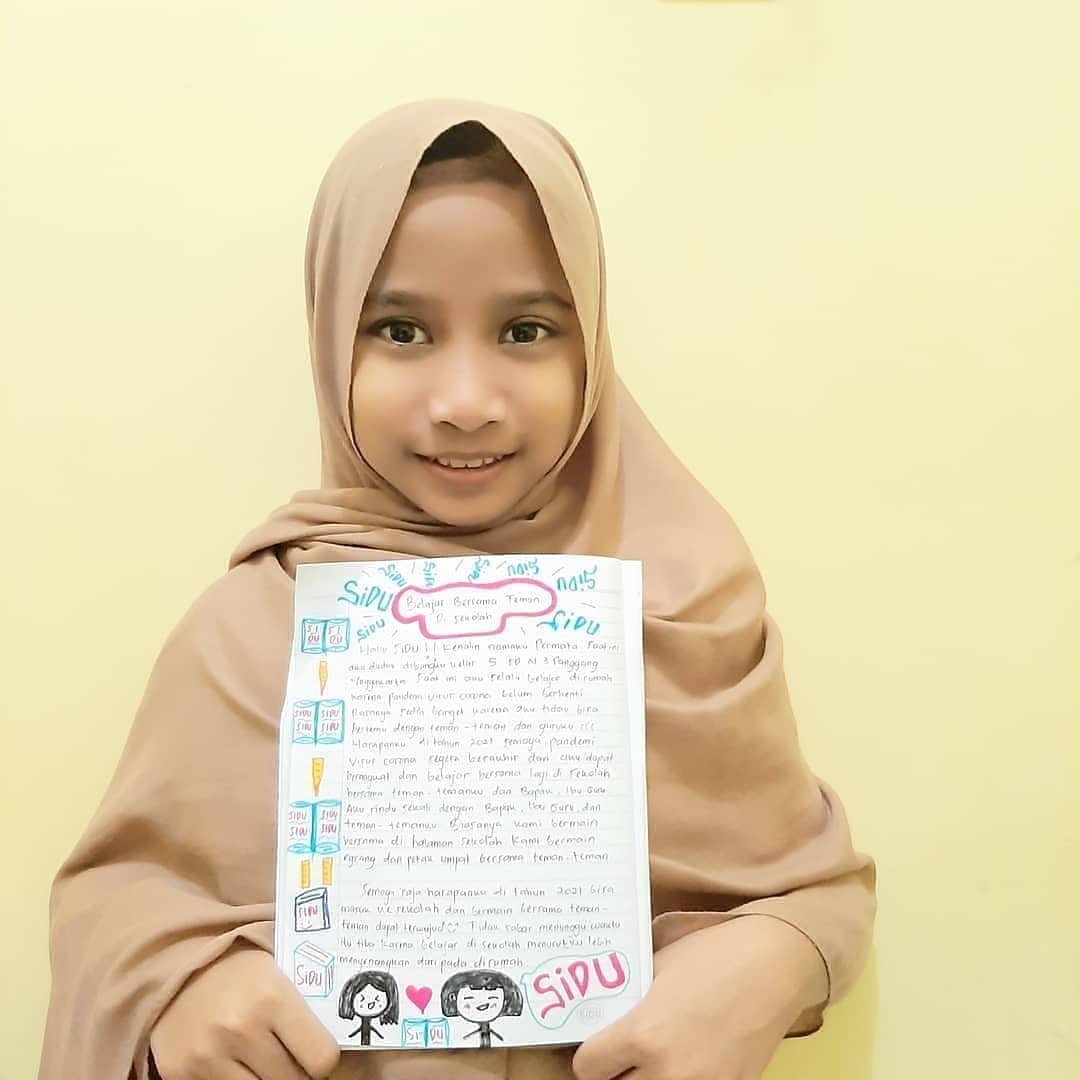 SiDU SiDU SiDU SiDU SiDU SiDU
SiDU SiDU
Belajar Bersama Teman
Di sekolah
SI SI
DU DU
Hallo SiDU!! Kenalin namaku Permata. Saat ini
aku duduk dibangku kelas 5 SD N 3 Panggang
Yogyakarta. Saat ini aku selalu belajar di rumah
karna pandemi virus corona belum berhenti
Rasanya sedih banget karena aku tidak bisa
bertemu dengan teman-teman dan guruku :((
Harapanku di tahun 2021 semoga pandemi
virus corona segera berakhir dan aku dapat
berangkat dan belajar bersama lagi di sekolah
bersama teman-temanku dan Bapak, Ibu Guru.
Aku rindu sekali dengan Bapak, Ibu Guru, dan
teman-temanku. Biasanya kami bermain
bersama di halaman sekolah. Kami bermain
egrang dan petak umpat bersama teman-teman.
Semoga saja harapanku di tahun 2021 bisa
masuk ke sekolah dan bermain bersama teman-
teman dapat terwujud. Tidak sabar menunggu waktu
itu tiba karna belajar di sekolah menurutku lebih
menyenangkan dari pada di rumah.
SIDU SIDU
SIDU SIDU
SIDU SIDU
SIDU SIDU
SIDU
SiDU
Si-DU
SiDU